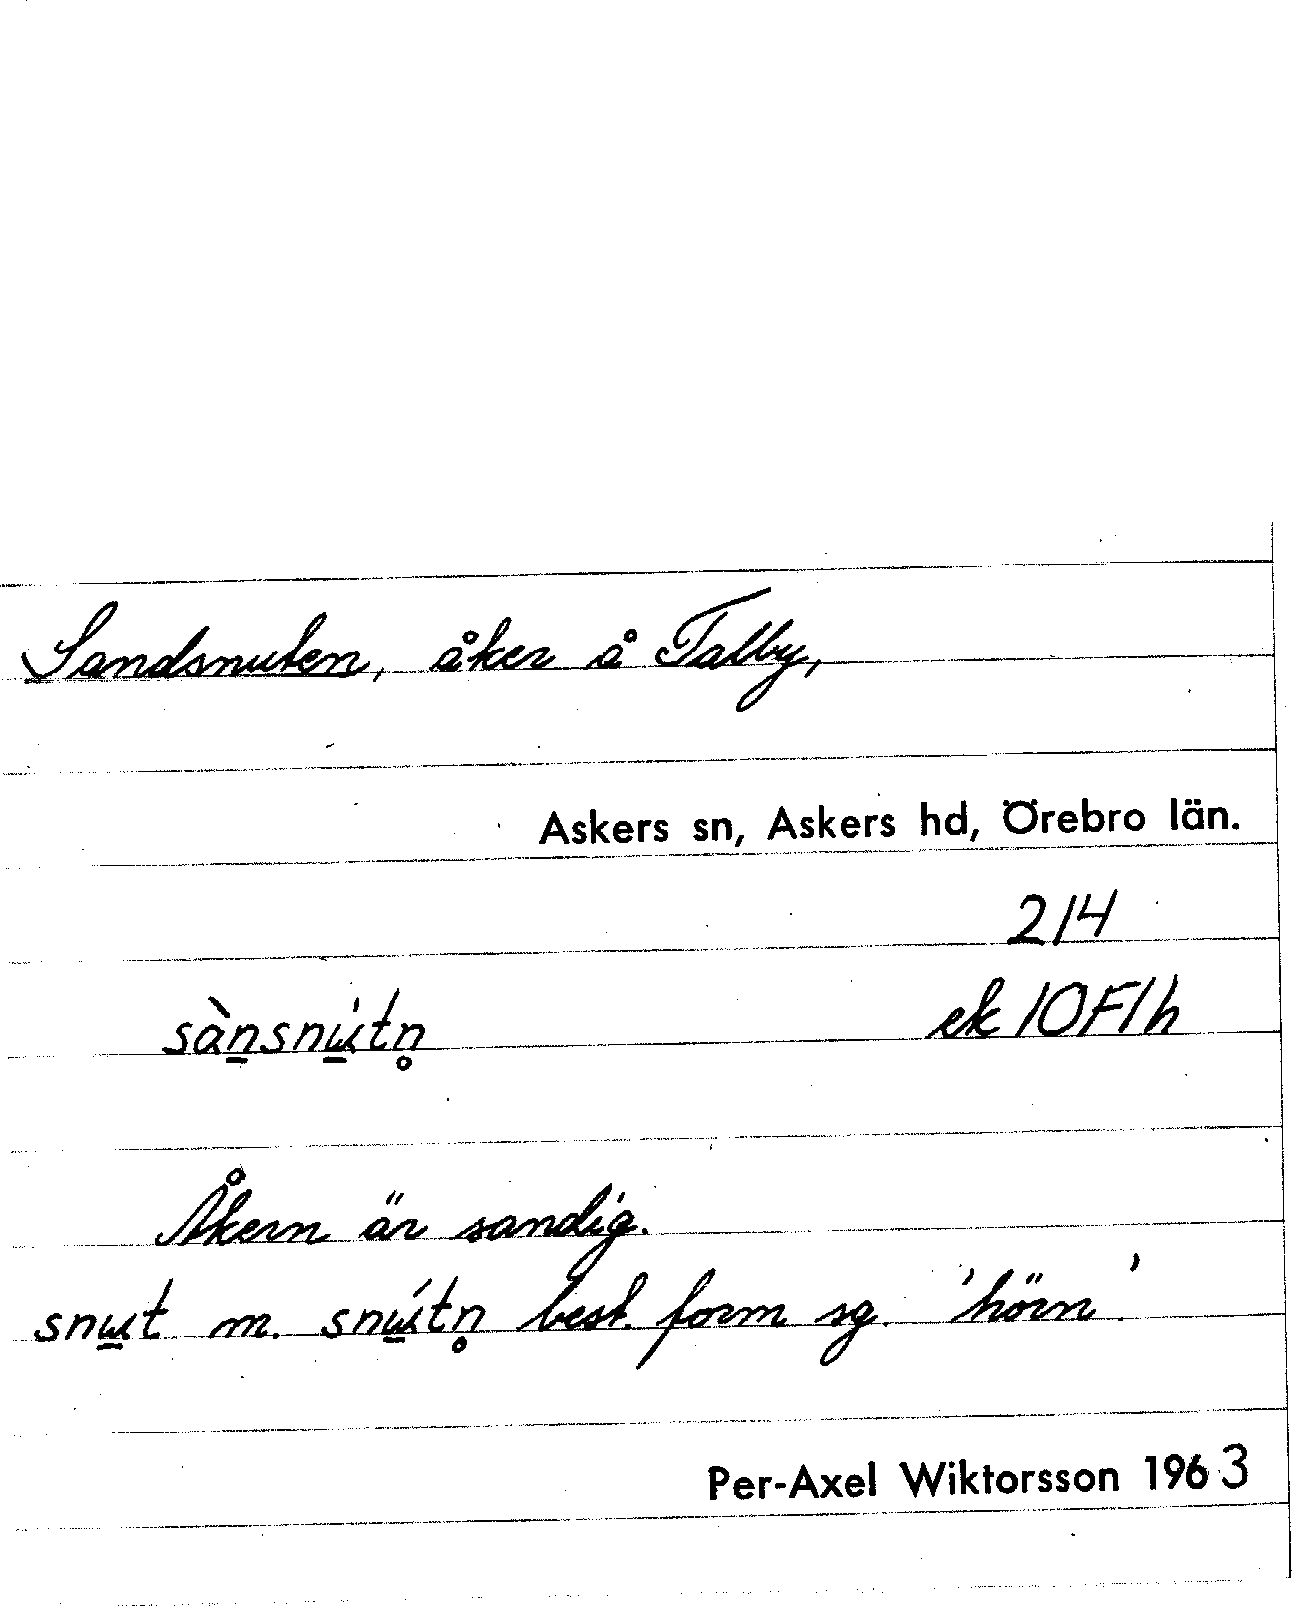 Sandsnuten, åker å Talby,
Askers sn, Askers hd, Örebro län.
214
sàn̲snɯ̲́tn̥ ek 10F1h
Åkern är sandig.
snɯ̲t m. snɯ̲́tn̥ best. form sg. 'hörn'.
Per-Axel Wiktorsson 1963